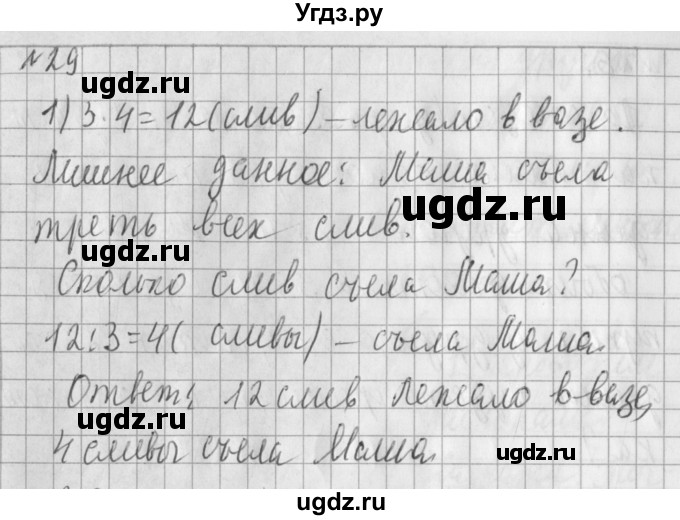 Угдз.ру
№29
ugdz.ru
1) 3·4=12(слив) – лежало в вазе.
ugdz.ru
Лишнее данное: Маша съела
ugdz.ru
треть всех слив.
ugdz.ru
Сколько слив съела Маша?
12:3=4( сливы) – съела Маша.
Ответ: 12 слив лежало в вазе,
ugdz.ru
4 сливы съела Маша.
ugdz.ru
ugdz.ru